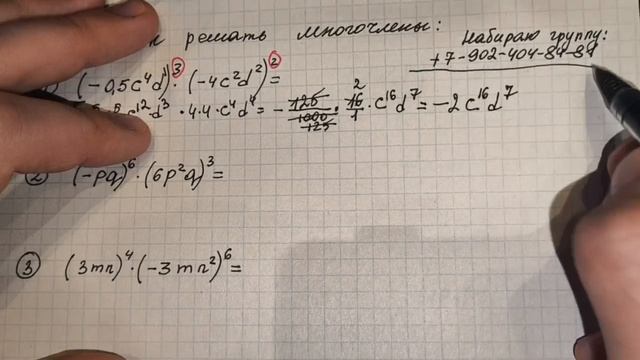 решать многочлены: Набираю группу:
+7-902-404-84-84
(-0,5c⁴d)³·(-4c²d²)²=
c¹²d³·4·4·c⁴d⁴=-125/1000 125·16/1 2·c¹⁶d⁷=-2c¹⁶d⁷
② (-pq)⁶·(6p²q)³=
③ (3mn)⁴·(-3mn²)⁶=